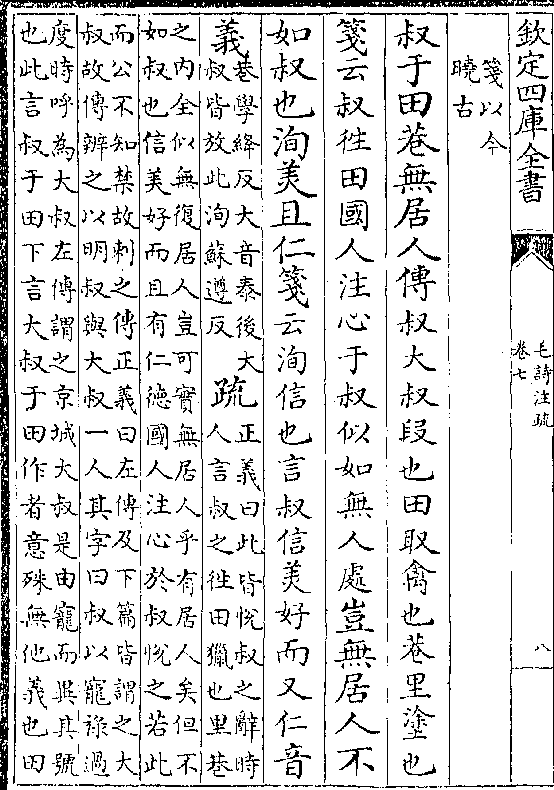 欽定四庫全書
毛詩注疏
卷七
八
箋以今
曉古
叔于田巷無居人傳叔大叔段也田取禽也巷里塗也
箋云叔徃田國人注心于叔似如無人處豈無居人不
如叔也洵美且仁箋云洵信也言叔信美好而又仁音
義
巷學絳反大音泰後大
叔皆放此洵蘇遵反
疏
正義曰此皆悅叔之辭時
人言叔之徃田獵也里巷
之內全似無復居人豈可實無居人乎有居人矣但不
如叔也信美好而且有仁德國人注心於叔悅之若此
而公不知禁故刺之傳正義曰左傳及下篇皆謂之大
叔故傳辨之以明叔與大叔一人其字曰叔以寵祿過
度時呼為大叔左傳謂之京城大叔是由寵而異其號
也此言叔于田下言大叔于田作者意殊無他義也田